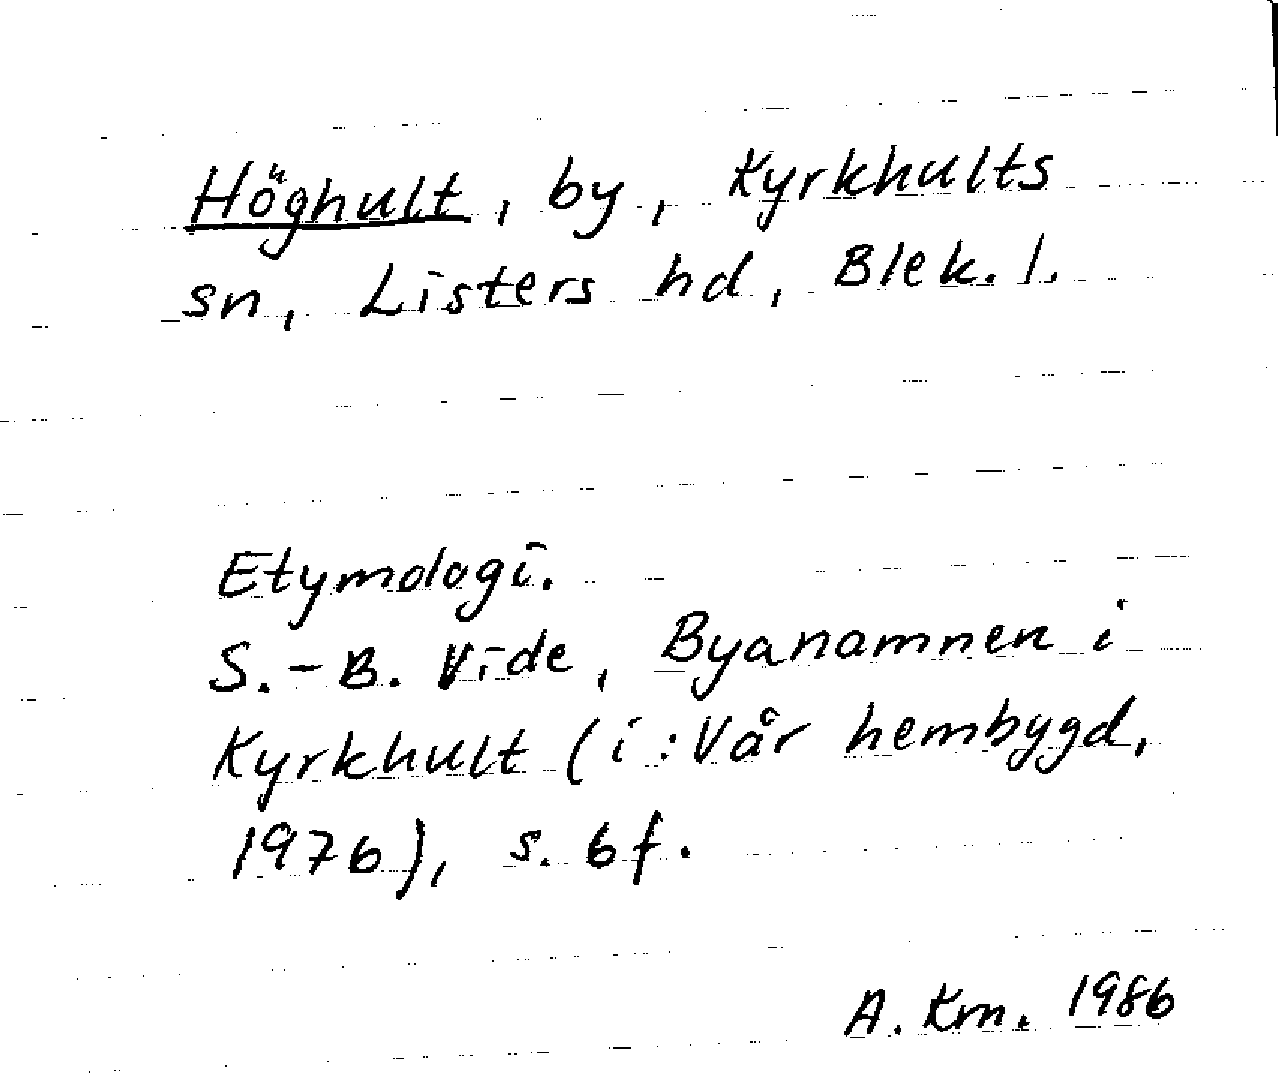 Höghult, by, Kyrkhults
sn, Listers hd, Blek. l.
Etymologi.
S.-B. Vide, Byanamnen i
Kyrkhult (i: Vår hembygd,
1976), s. 6 f.
A. Krn. 1986